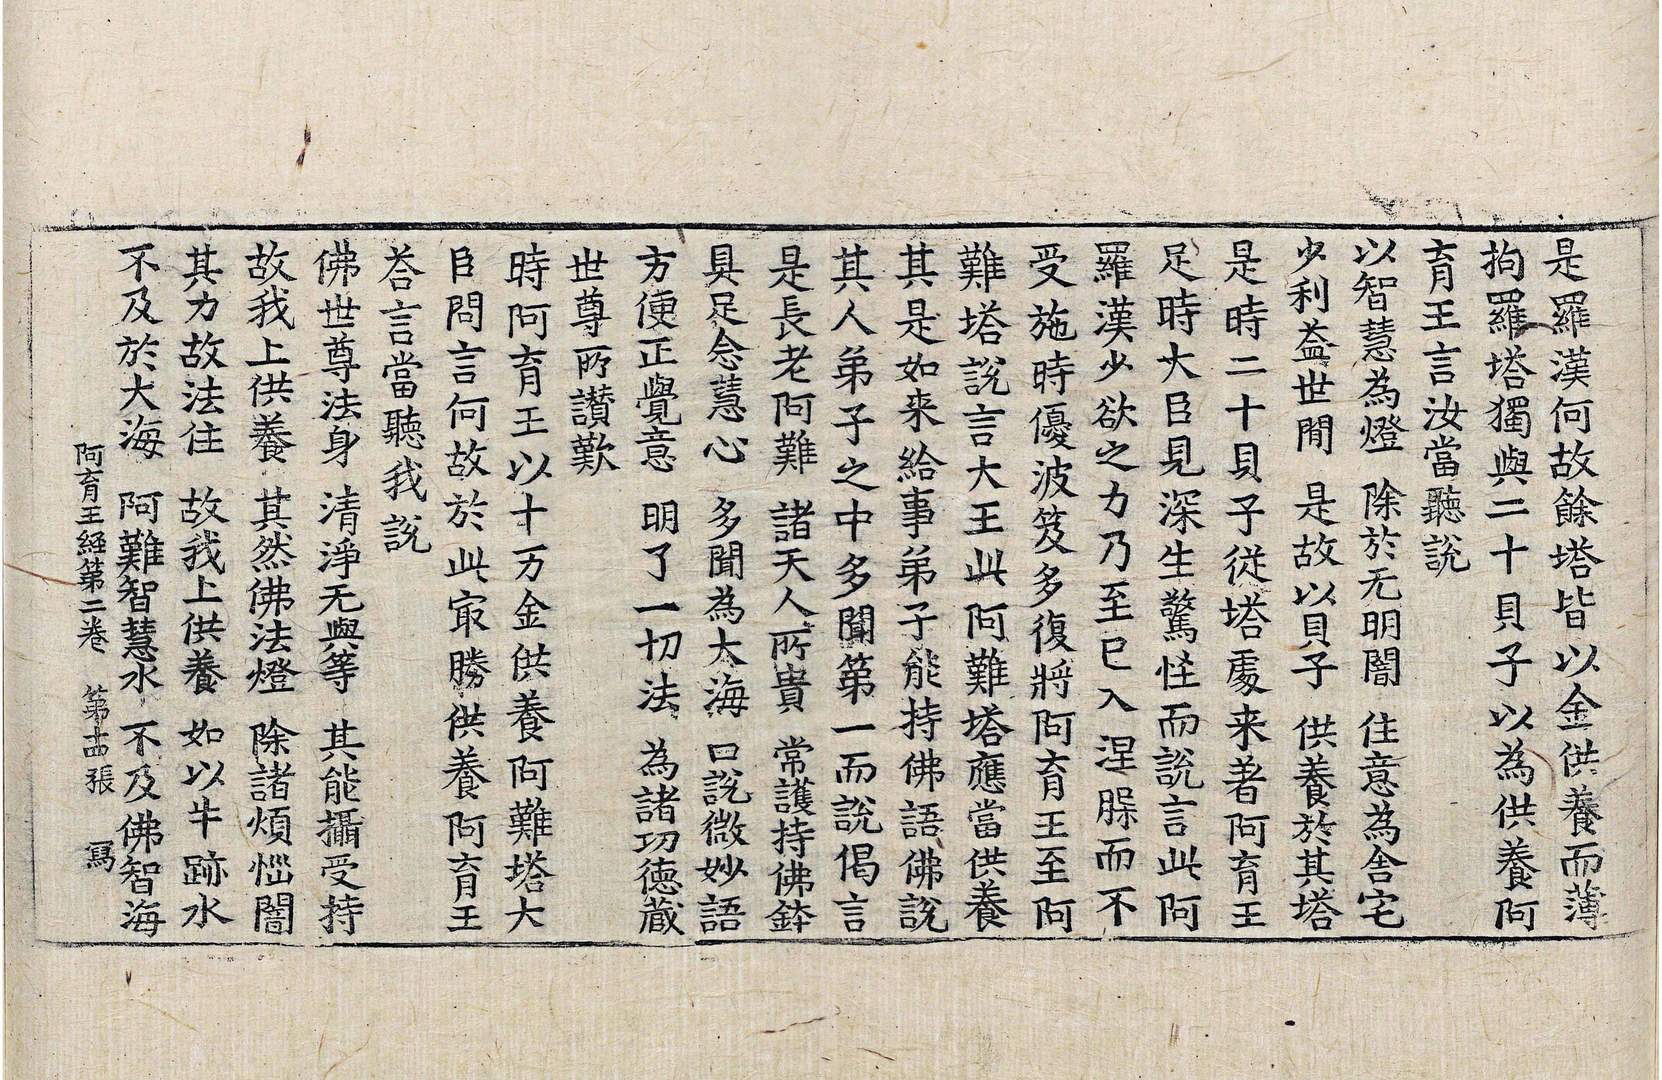 是羅漢何故餘塔皆以金供養而薄
拘羅塔獨與二十貝子以為供養阿
育王言汝當聽說
以智慧為燈 除於无明闇 住意為舍宅
少利益世閒 是故以貝子 供養於其塔
是時二十貝子從塔處来著阿育王
足時大臣見深生驚怪而說言此阿
羅漢少欲之力乃至已入涅槃而不
受施時優波笈多復將阿育王至阿
難塔說言大王此阿難塔應當供養
其是如来給事弟子能持佛語佛說
其人弟子之中多聞第一而說偈言
是長老阿難 諸天人所貴 常護持佛鉢
具足念慧心 多聞為大海 口說微妙語
方便正覺意 明了一切法 為諸功德蔵
世尊所讃歎
時阿育王以十万金供養阿難塔大
臣問言何故於此㝡勝供養阿育王
荅言當聽我說
佛世尊法身 清淨无與等 其能攝受持
故我上供養 其然佛法燈 除諸煩惱闇
其力故法住 故我上供養 如以牛跡水
不及於大海 阿難智慧水 不及佛智海
阿育王經第二卷 第十四張 寫